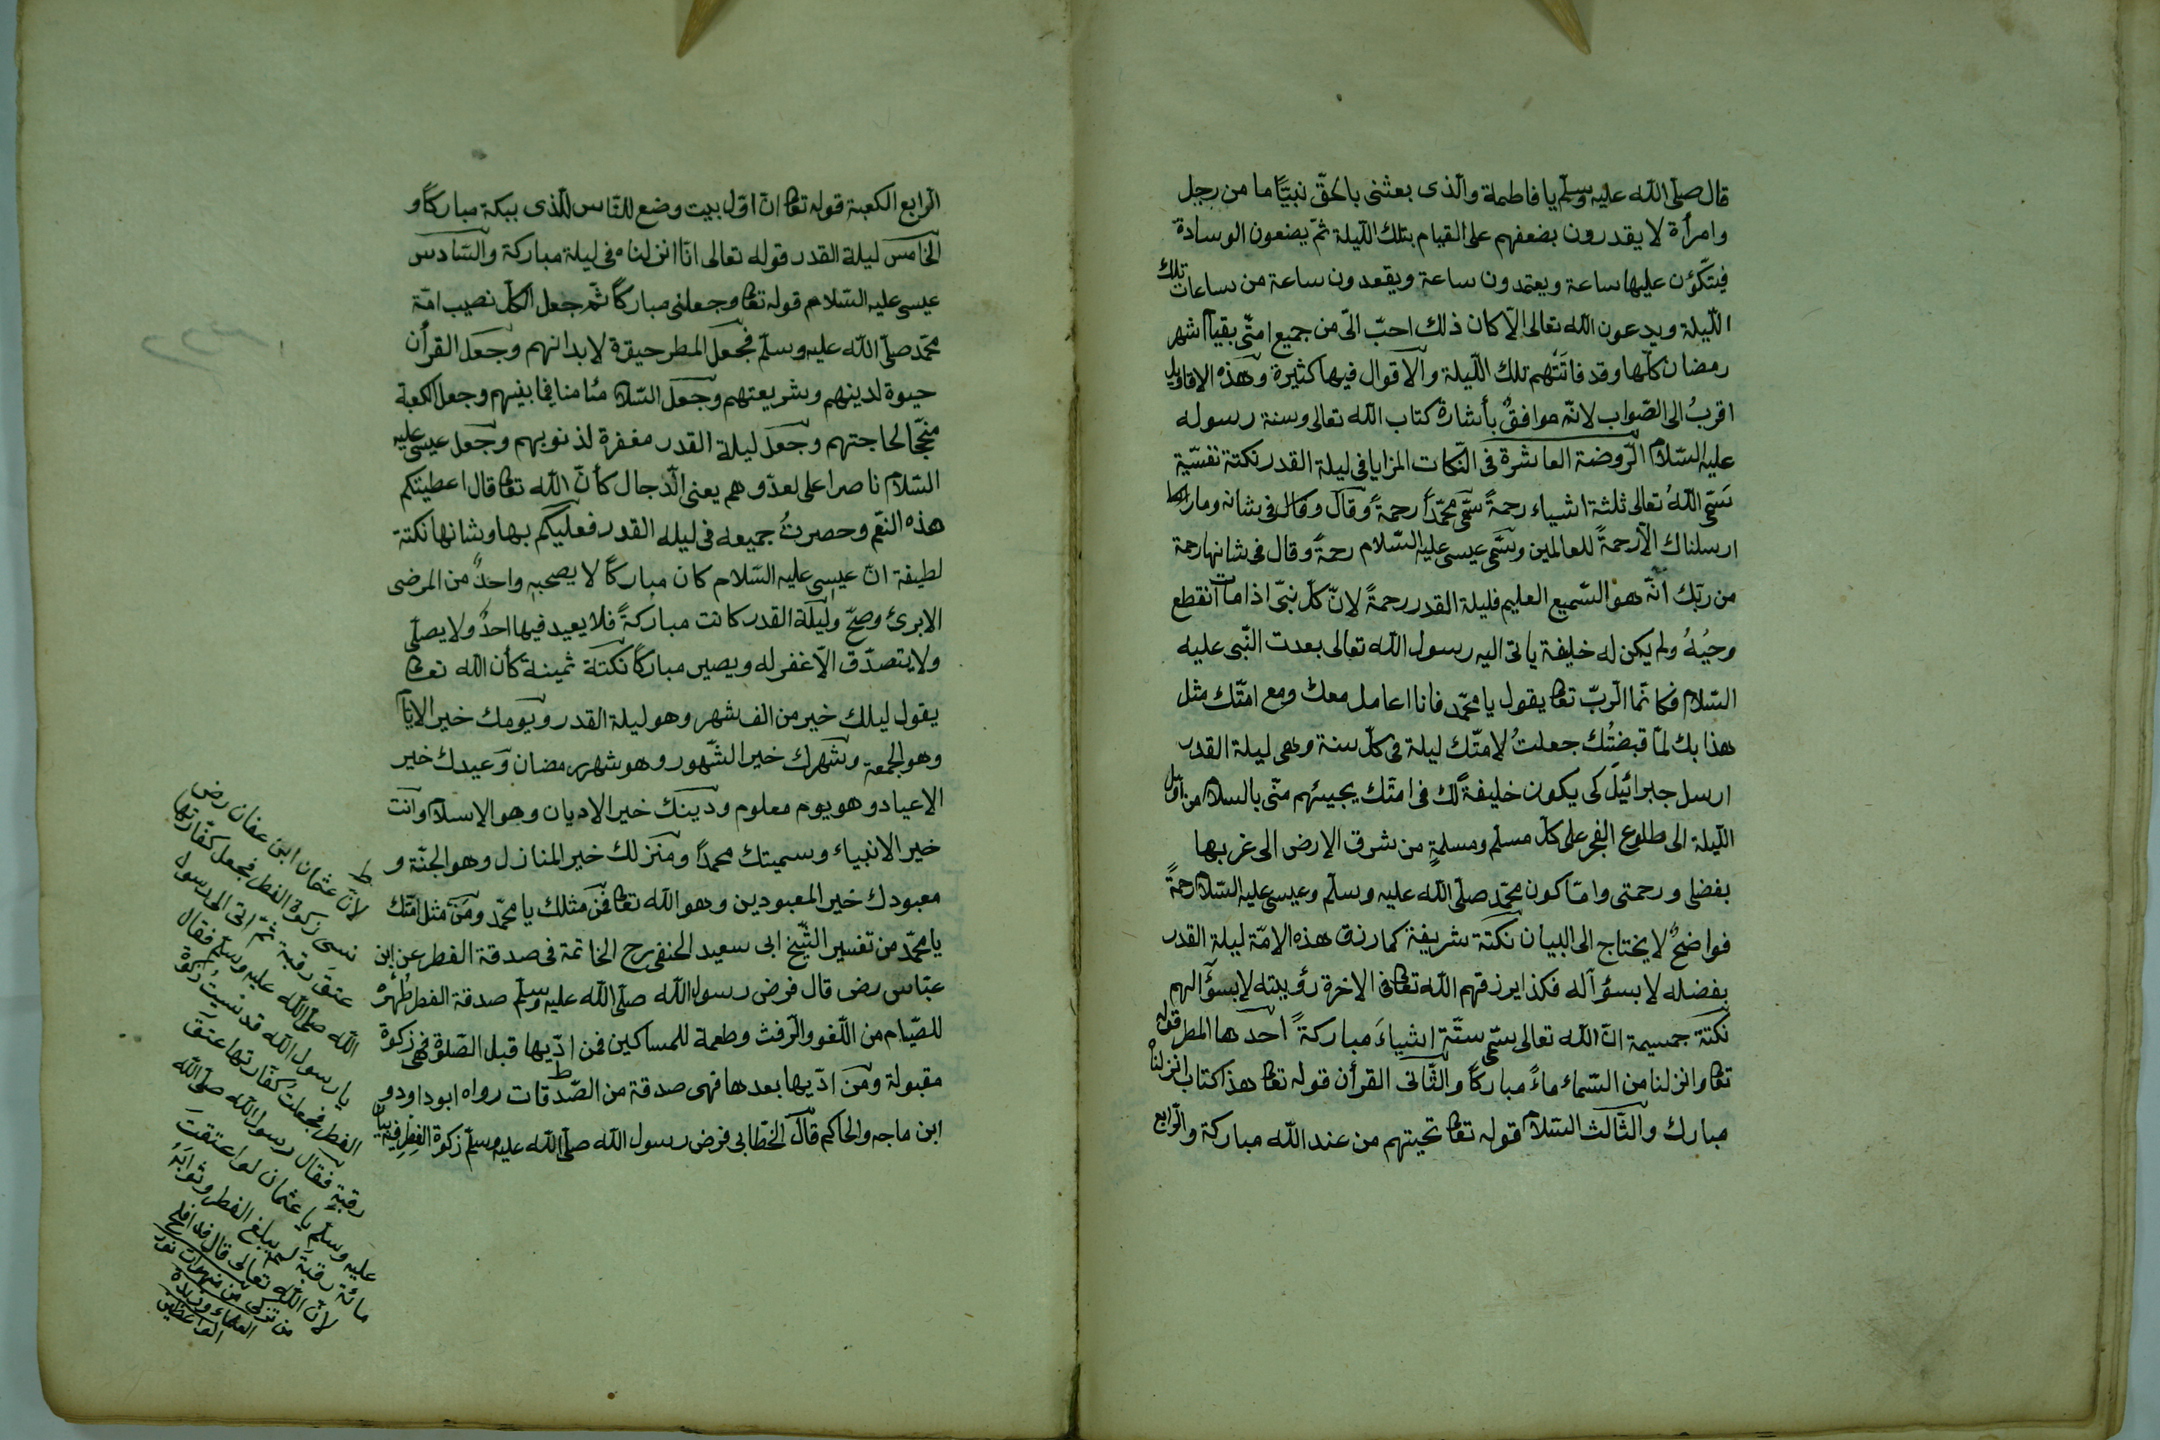 قال صلّى الله عليه وسلّم يا فاطمة والّذى بعثنى بالحقّ نبيّا ما من رجل
وامرأة لا يقدرون بضعفهم على القيام بتلك اللّيلة ثمّ يضعون الوسادة
فيتّكؤن عليها ساعة ويعتمدون ساعة ويقعدون ساعة من ساعات تلك
اللّيلة ويدعون الله تعالى الّا كان ذلك احبّ الىّ من جميع امتّى بقيام شهر
رمضان كلّها وقد فاتتهم تلك اللّيلة والاقوال فيها كثيرة وهذه الاقاويل
اقربُ الى الصّواب لانّه موافقٌ بأشارة كتاب الله تعالى وسنة رسوله
عليه السّلام الرّوضة العاشرة فى النّكات المزايا فى ليلة القدر نكتة نفسيّة
سَمّى اللهُ تعالى ثلثة اشياء رحمةً سمّى محمّداً رحمةً وقال وقال فى شانه وما
ارسلناك الّا رحمةً للعالمين وسمّى عيسى عليه السّلام رحمةً وقال فى شانها رحمة
من ربّك انّه هو السّميع العليم فليلة القدر رحمةً لانّ كلّ نبىّ اذا مات انقطع
وحيُهُ ولم يكن له خليفة ياتى اليه رسول الله تعالى بعدت النّبى عليه
السّلام فكانّما الرّبّ تعا يقول يا محمّد فانا اعامل معك ومع امتّك مثل
هذا بك لمّا قبضتُك جعلتُ لامتّك ليلة فى كلّ سنة وهى ليلة القدر
ارسل جبرائيلَ كى يكون خليفةً لك فى امتّك يجيئهم منّى بالسلام من اوّل
اللّيلة الى طلوع الفجر على كلّ مسلم ومسلمةٍ من شرق الارض الى غربها
بفضلى ورحمتى وامّا كون محمّد صلّى الله عليه وسلّم وعيسى عليه السّلام رحمةً
فواضحٌ لا يختاج الى البيان نكتة شريفة كما رزق هذه الامّة ليلة القدر
بفضله لا بسؤاله فكذا يرزقهم الله تعا فى الاخرة رؤيته لا بسؤالهم
نكتة جسيمة انّ الله تعالى سمّى ستّة اشياءَ مباركةً احدها المطر قوله
تعا وانزلنا من السّماء ماءً مباركاً والثّانى القرأن قوله تعا هذا كتاب انزلناه
مبارك والثّالث السّلام قوله تعا تحيتهم من عند الله مباركة والرّابع
الرابع الكعبة قوله تعا انّ اوّل بيت وضع للنّاس للّذى ببكة مباركاً و
الخامس ليلة القدر قوله تعالى انّا انزلناه فى ليلة مباركة والسّادس
عيسى عليه السّلام قوله تعا وجعلنى مباركاً ثمّ جعل الكلّ نصيب امّة
محمّد صلّى الله عليه وسلّم فجعل المطر حيوة لابدانهم وجعل القرأن
حيوة لدينهم وشريعتهم وجعل السّلام مأمنا فيما بينهم وجعل الكعبة
منجّحا لحاجتهم وجعل ليلة القدر مغفرة لذنوبهم وجعل عيسى عليه
السّلام ناصرا على لعدوّهم يعنى الدّجال كأنّ الله تعا قال اعطيتكم
هذه النّعم وحصرتُ جميعه فى ليله القدر فعليكم بها وشانها نكتة
لطيفة انّ عيسى عليه السّلام كان مباركاً لا يصحبه واحدٌ من المرضى
الا برئ وصحّ وليلة القدر كانت مباركةً فلا يعيد فيها احدٌ ولا يصلّى
ولا يتصدّق الّا غفر له ويصير مباركاً نكتة ثمينة كأن الله تعا
يقول ليلك خير من الف شهر وهو ليلة القدر ويومك خير الايّام
وهو الجمعة وشهرك خير الشّهور وهو شهر رمضان وعيدك خير
الاعياد وهو يوم معلوم ودينك خير الاديان وهو الاسلام وانت
خير الانبياء وسميتك محمداً ومنزلك خير المنازل وهو الجنّة و
معبودك خير المعبودين وهو الله تعا فمن مثلك يا محمّد ومن مثل امّتك
يا محمّد من تفسير الشّيخ ابى سعيد الحنفى رح الخاتمة فى صدقة الفطر عن ابن
عبّاس رض قال فرض رسول الله صلّى الله عليه وسلّم صدقة الفطر طُهرة
للصّيام من اللّغو والرّفث وطعمة للمساكين فمن ادّيها قبل الصّلوة فهى زكوة
مقبولة ومن ادّيها بعدها فهى صدقة من الصّدقات رواه ابو داود و
ابن ماجه والحاكم قال الخطّابى فرض رسول الله صلّى الله عليه وسلّم زكوة الفطر فيه بيان
لانّ عثمان ابن عفان رض
نسى زكوة الفطر فجعل كفّارتها
عتق رقبة ثمّ اتى الى رسول
الله صلّى الله عليه وسلّم فقال
يا رسول الله قد نسيت زكوة
الفطر فجعلت كفّارتها عتق
رقبة فقال رسول الله صلّى الله
عليه وسلّم يا عثمان لو اعتقت
مائة رقبة لم يبلغ الفطر وثوابه
لانّ الله تعالى قال قد افلح
من تزكى من
العلماء وزبدة
الواعظين